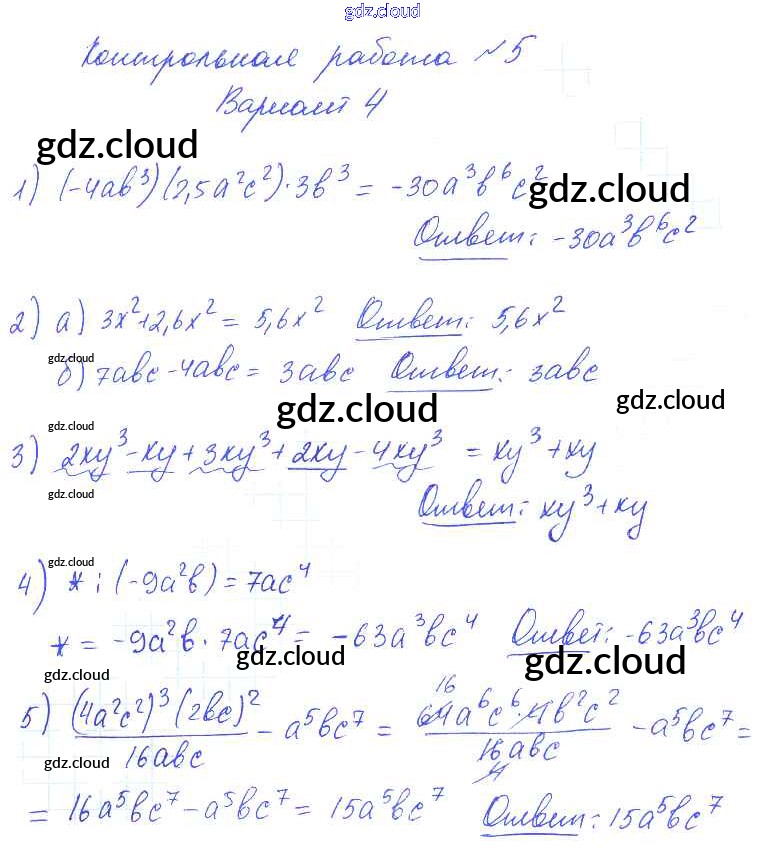 gdz.cloud
Контрольная работа №5
Вариант 4
gdz.cloud
1) (-4ab³)(2,5a²c²)·3b³ = -30a³b⁶c²
gdz.cloud
Ответ: -30a³b⁶c²
2) а) 3x²+2,6x² = 5,6x² Ответ: 5,6x²
gdz.cloud
б) 7abc-4abc = 3abc Ответ: 3abc
gdz.cloud gdz.cloud
gdz.cloud
3) 2xy³-xy+3xy³+2xy-4xy³ = xy³+xy
gdz.cloud
Ответ: xy³+xy
gdz.cloud
4) * : (-9a²b) = 7ac⁴
* = -9a²b · 7ac⁴ = -63a³bc⁴ Ответ: -63a³bc⁴
gdz.cloud gdz.cloud
gdz.cloud
5) (4a²c²)³(2bc)²/16abc - a⁵bc⁷ = 16 64a⁶c⁶·4b²c²/16abc 4 - a⁵bc⁷ =
gdz.cloud
= 16a⁵bc⁷-a⁵bc⁷ = 15a⁵bc⁷ Ответ: 15a⁵bc⁷